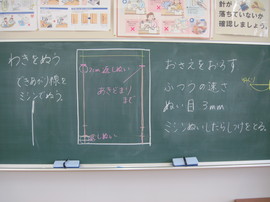 針が
落ちていないか
確認しましょう。
わきをぬう
できあがり線を
ミシンでぬう。
返しぬい
あきどまり
まで
返しぬい
おさえをおろす
ふつうの速さ
ぬい目3mm
ミシンぬいしたらしつけをとる。